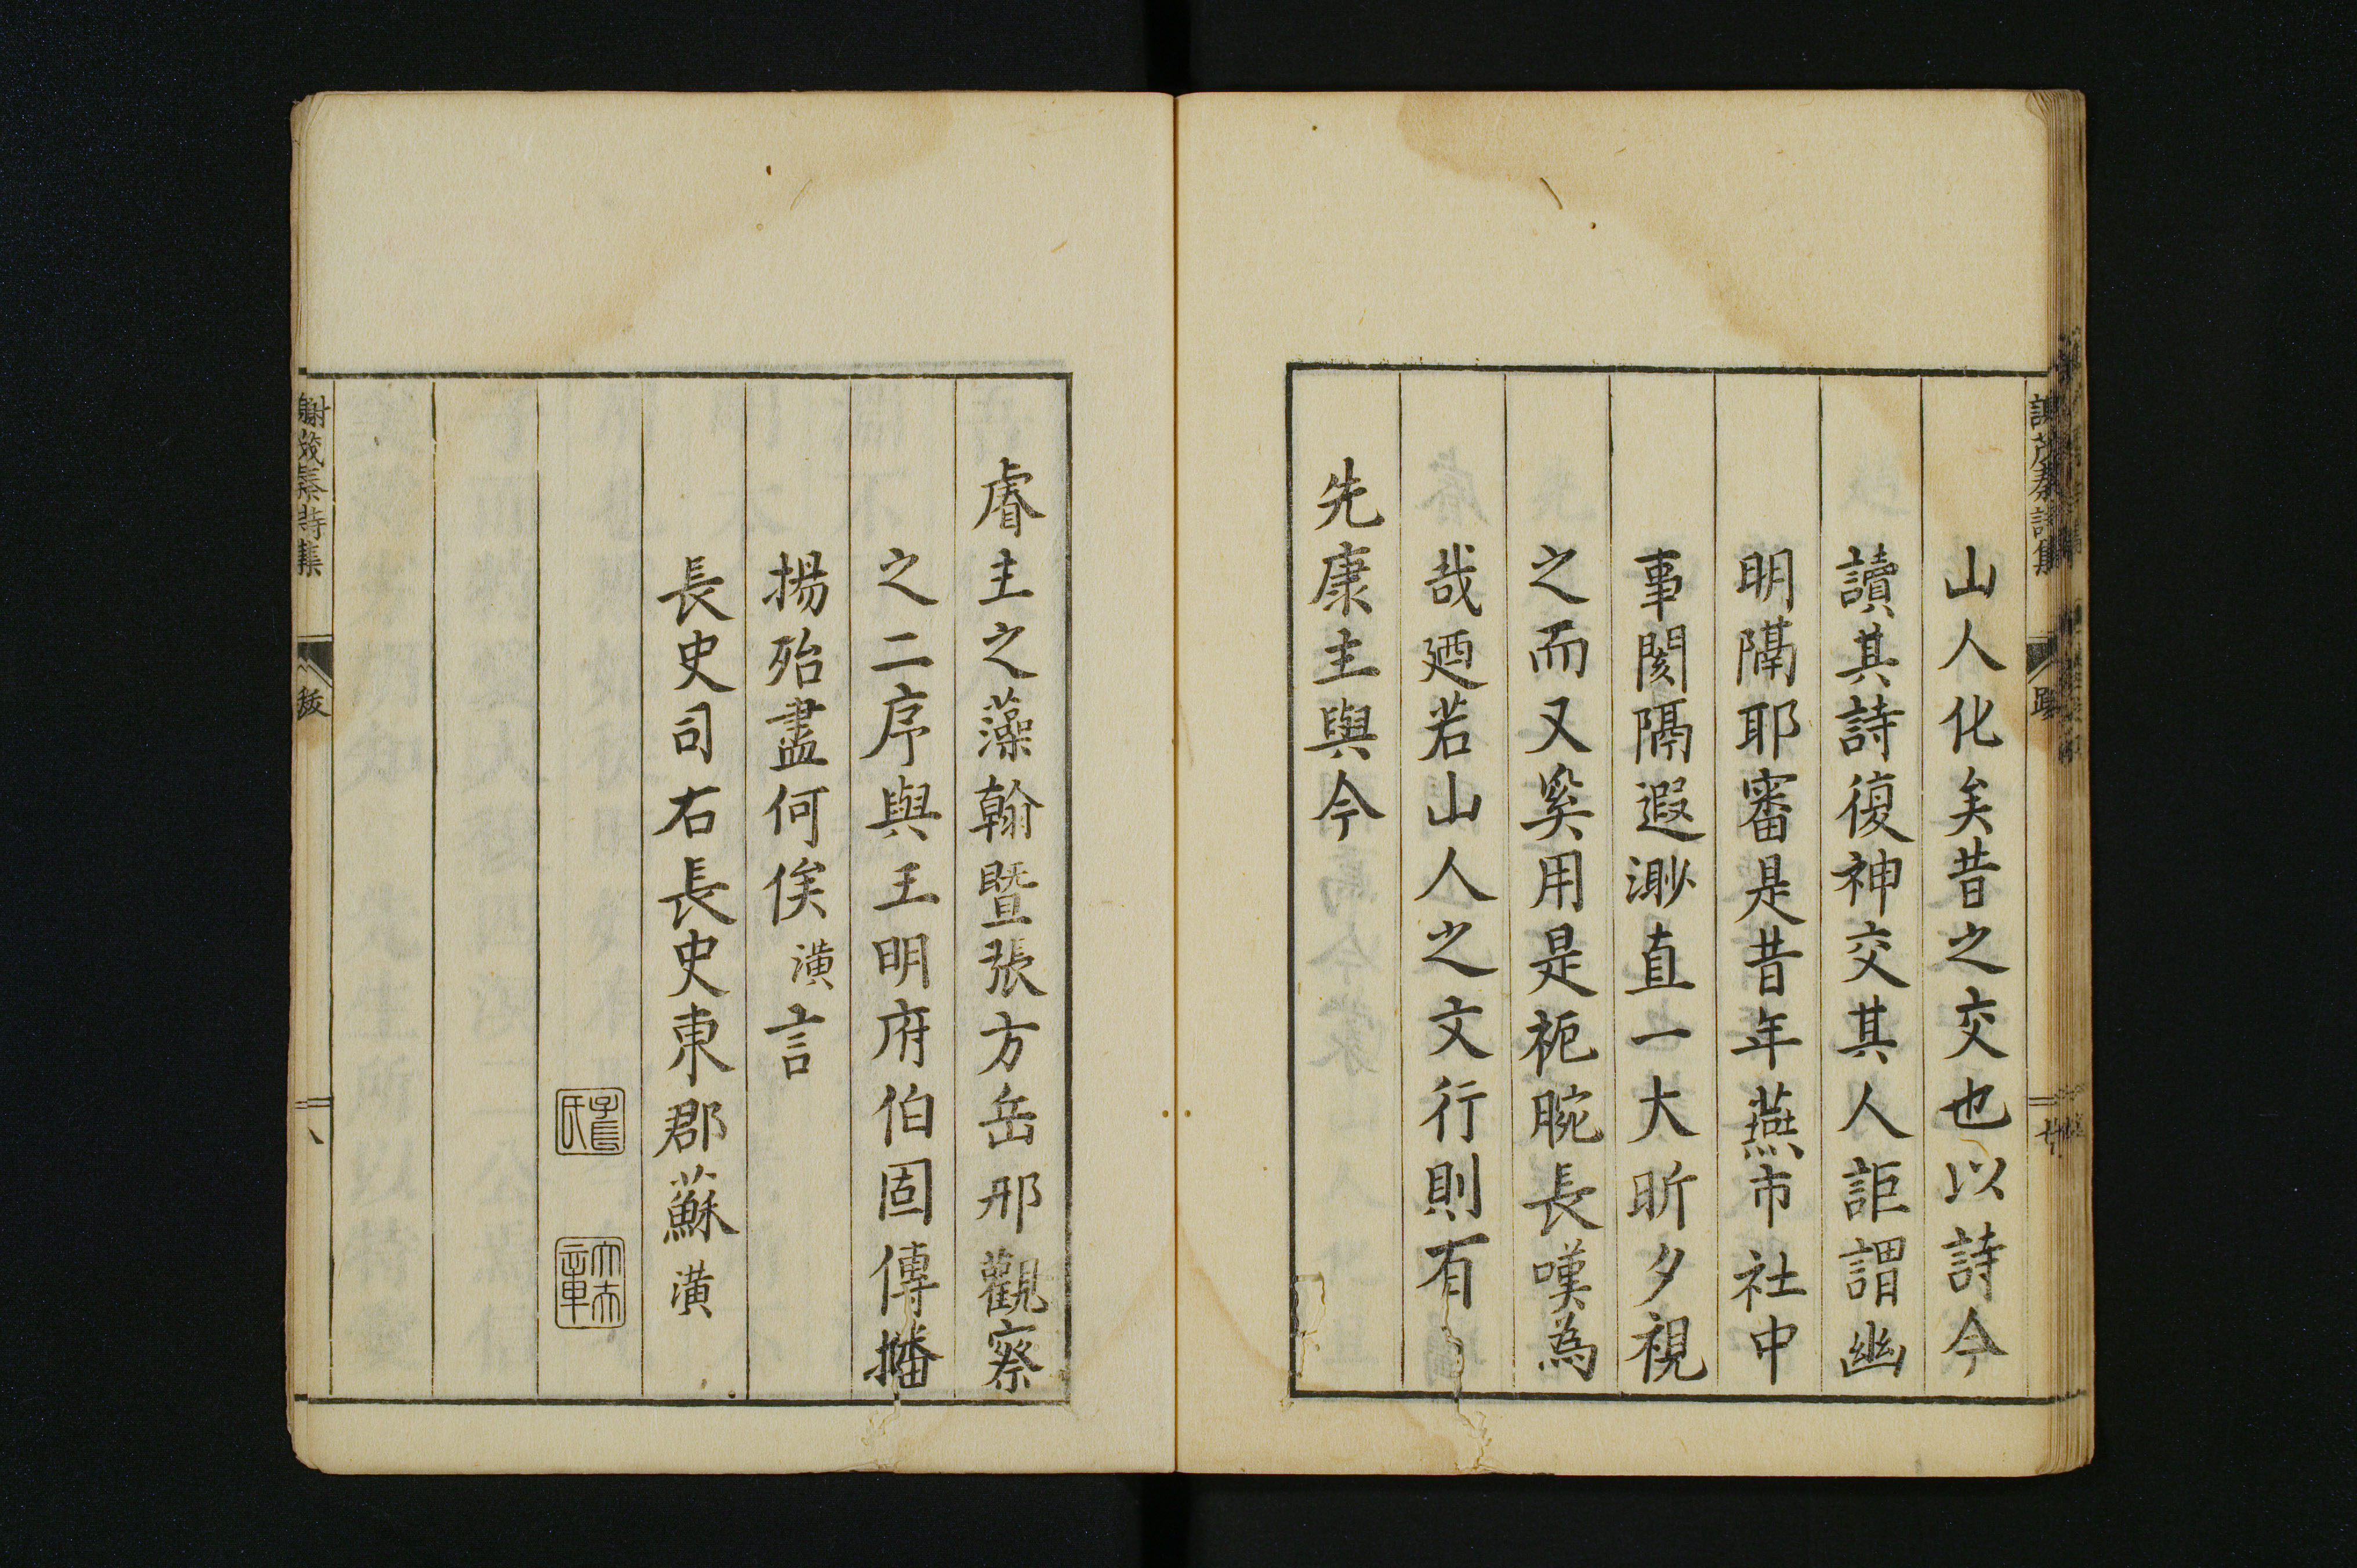 山人化矣昔之交也以詩今
讀其詩復神交其人詎謂幽
明隔耶審是昔年燕市社中
事閡隔遐渺直一大昕夕視
之而又奚用是扼腕長嘆為
哉廼若山人之文行則有
先康主與今
睿主之藻翰暨張方岳邢觀察
之二序與王明府伯固傳播
揚殆盡何俟潢言
長史司右長史東郡蘇潢
子長氏
謝茂秦詩集
跋